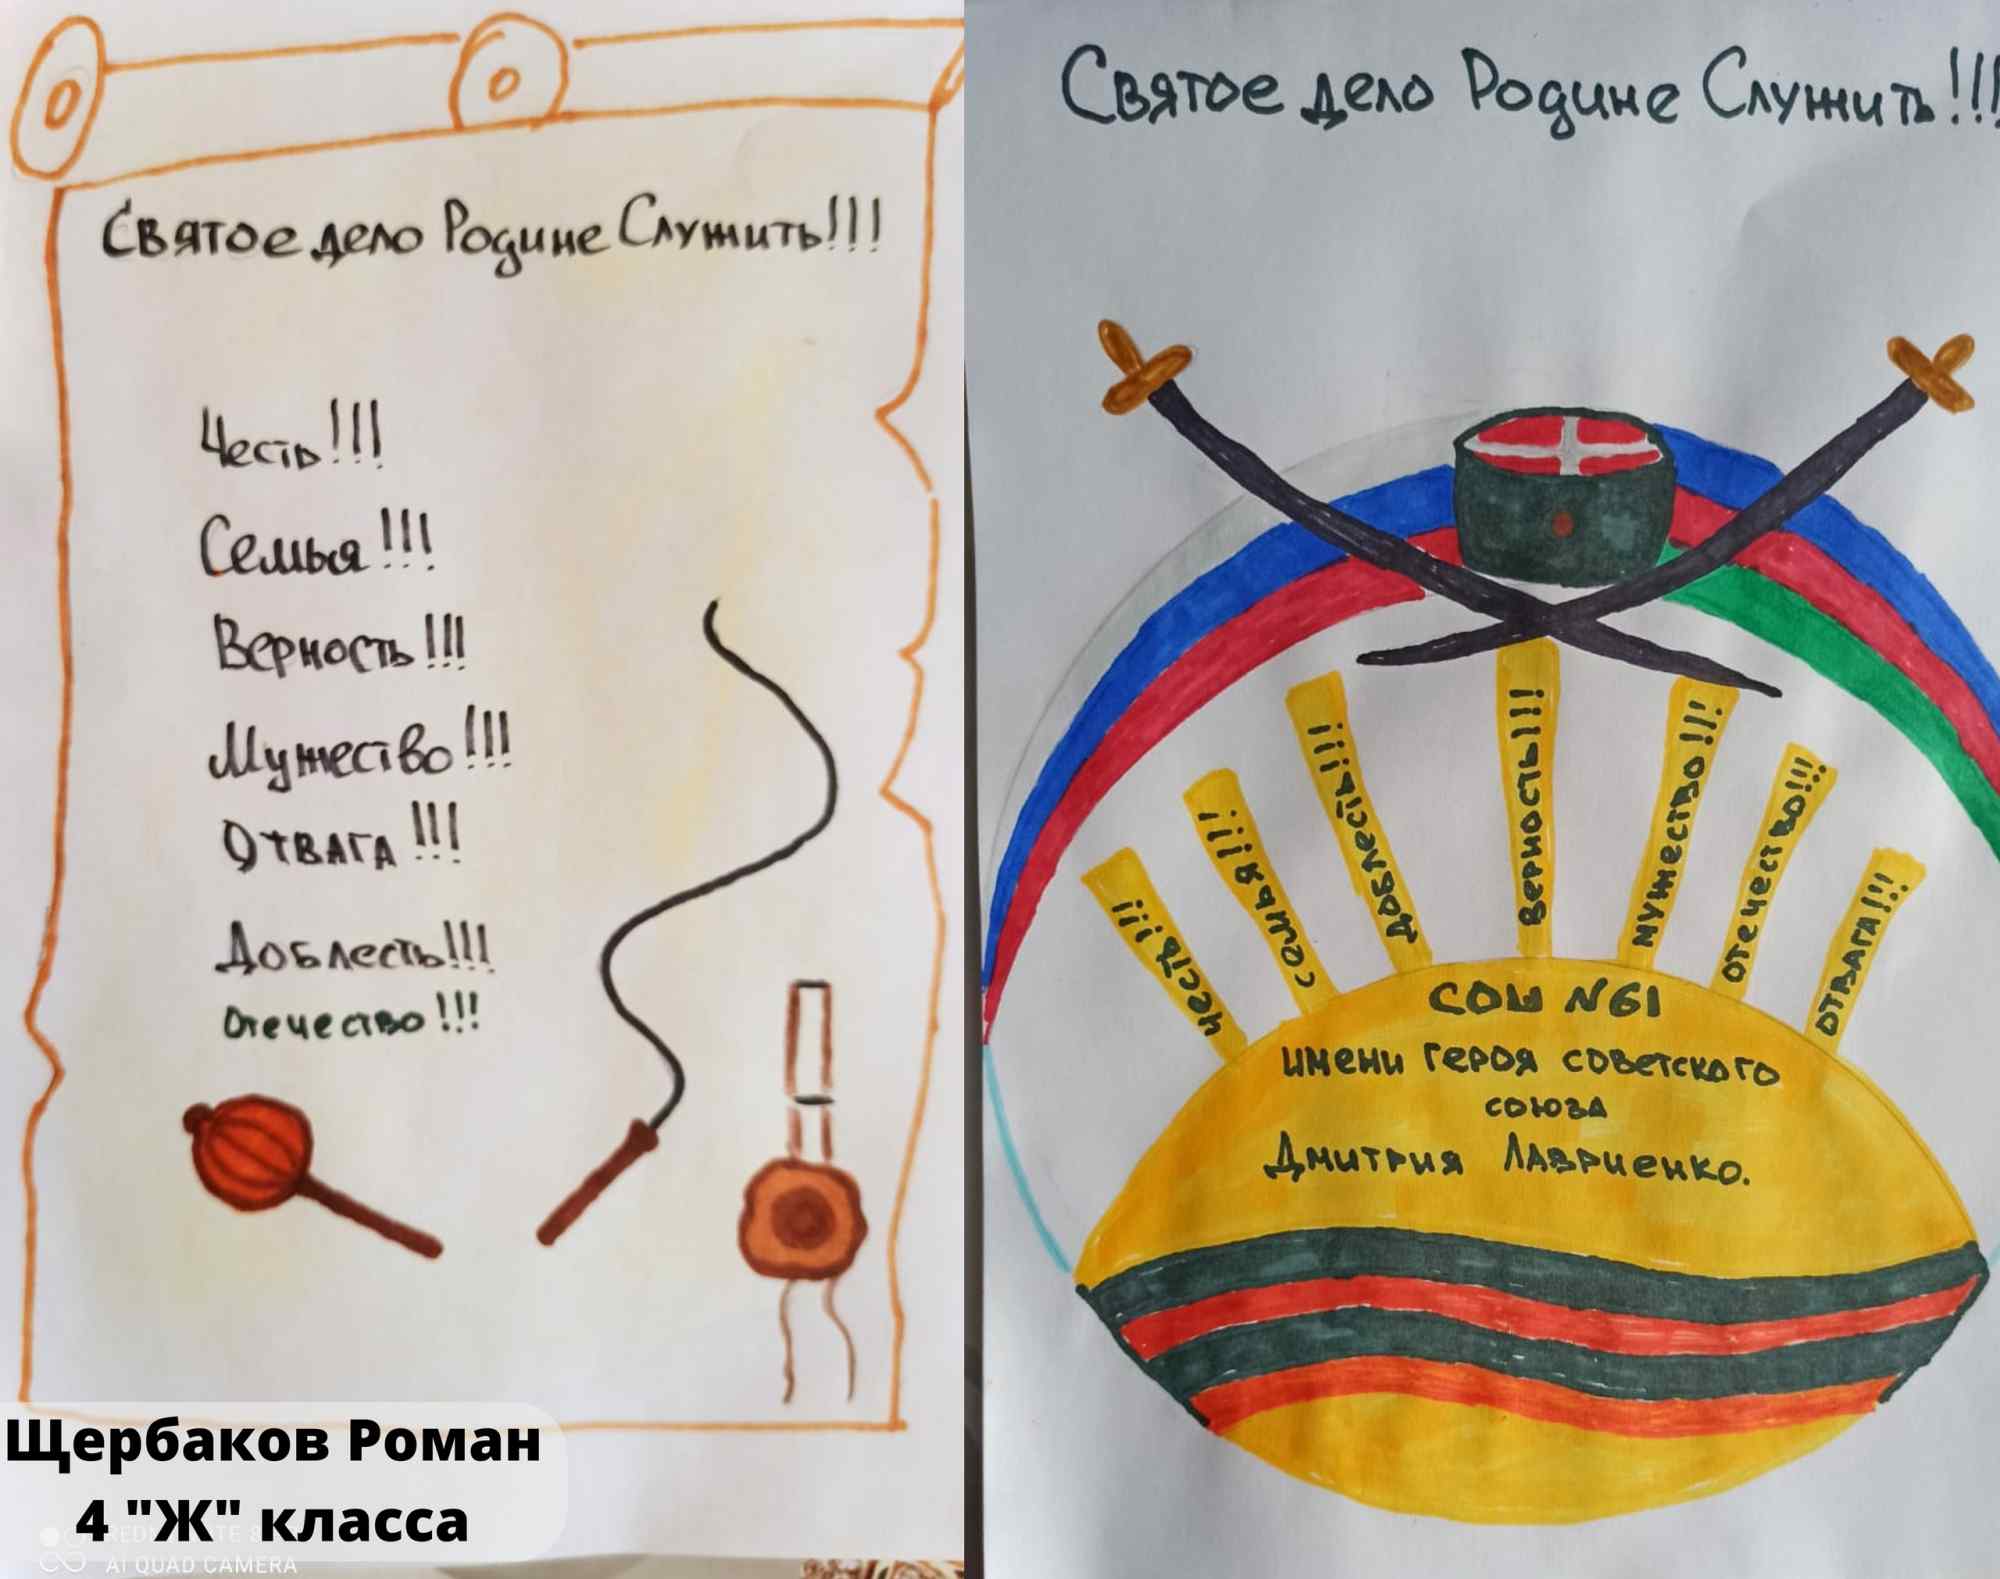 Святое дело Родине Служить!!!
Честь!!!
Семья!!!
Верность!!!
Мужество!!!
Отвага!!!
Доблесть!!!
Отечество!!!
Щербаков Роман
4 "Ж" класса
AI QUAD CAMERA
Святое дело Родине Служить!!!
честь!!!
семья!!!
доблесть!!!
верность!!!
мужество!!!
отечество!!!
отвага!!!
СОШ №61
имени героя советского
союза
Дмитрия Лавриенко.